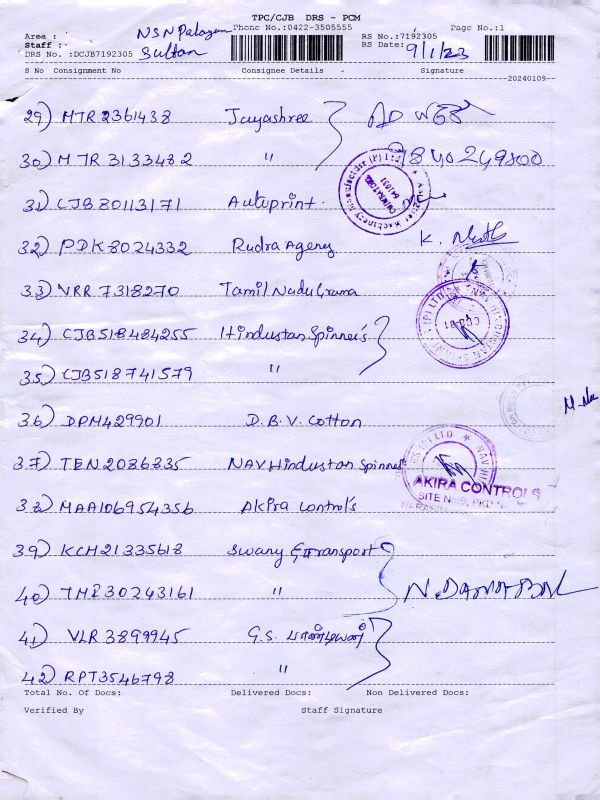 TPC/CJB DRS - PCM
Area : NSN Palayam Phone No.:0422-3505555 Page No.:1
Staff : Sultan RS No.:7192305
DRS No. :DCJB7192305 RS Date: 9/1/23
S No Consignment No Consignee Details Signature
20240109
29) MTR 2361438 Jayashree
30) MTR 3133482 " 9840249800
31) CJB80113171 Autoprint.
32) PDK8024332 Rudra Agency K.
33) VRR 7318270 Tamil Nadu Grama
34) CJB518484255 Hindustan Spinner's
35) CJB518741579 "
36) DPM429901 D.B.V. Cotton
37) TEN2086835 NAV Hindustan Spinners
AKIRA CONTROLS
38) MAA106954356 Akira Control's
39) KCM21335618 Swamy Transport
40) 30243161 " N.
41) VLR 3899945 G.S. பாண்டியன்
42) RPT3546798 "
Total No. Of Docs: Delivered Docs: Non Delivered Docs:
Verified By Staff Signature